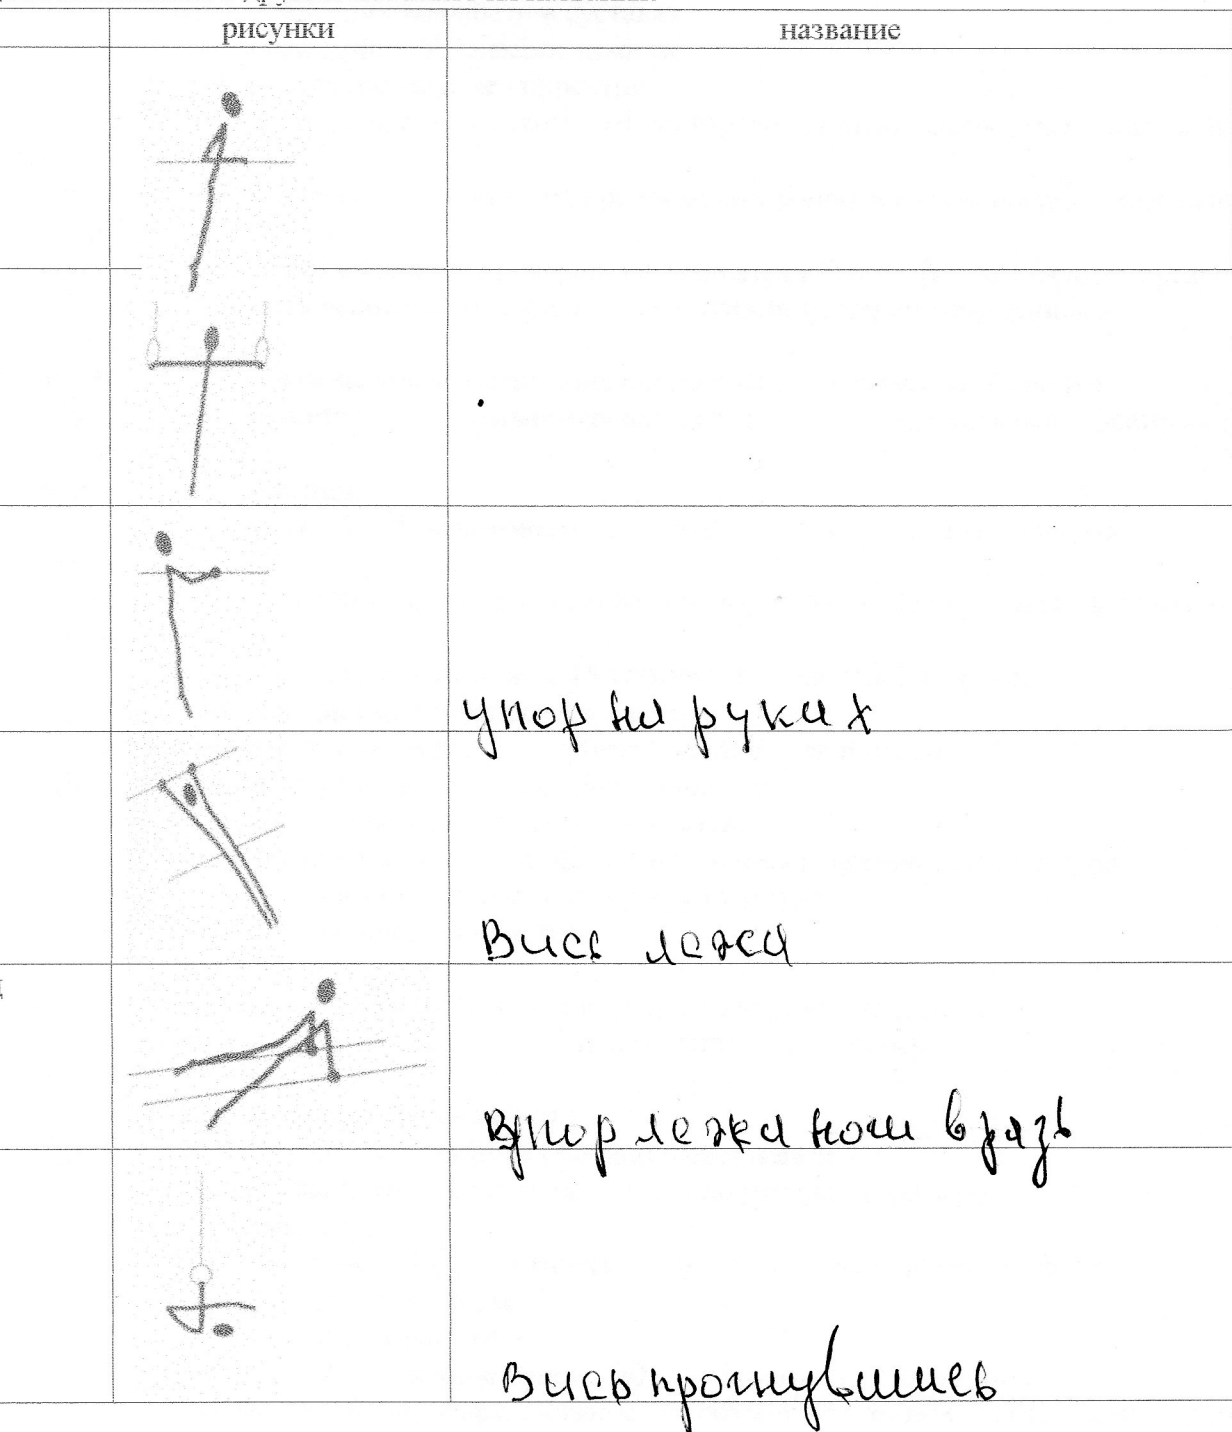 рисунки
название
упор на руках
Вис лежа
упор лежа ноги врозь
Вис прогнувшись